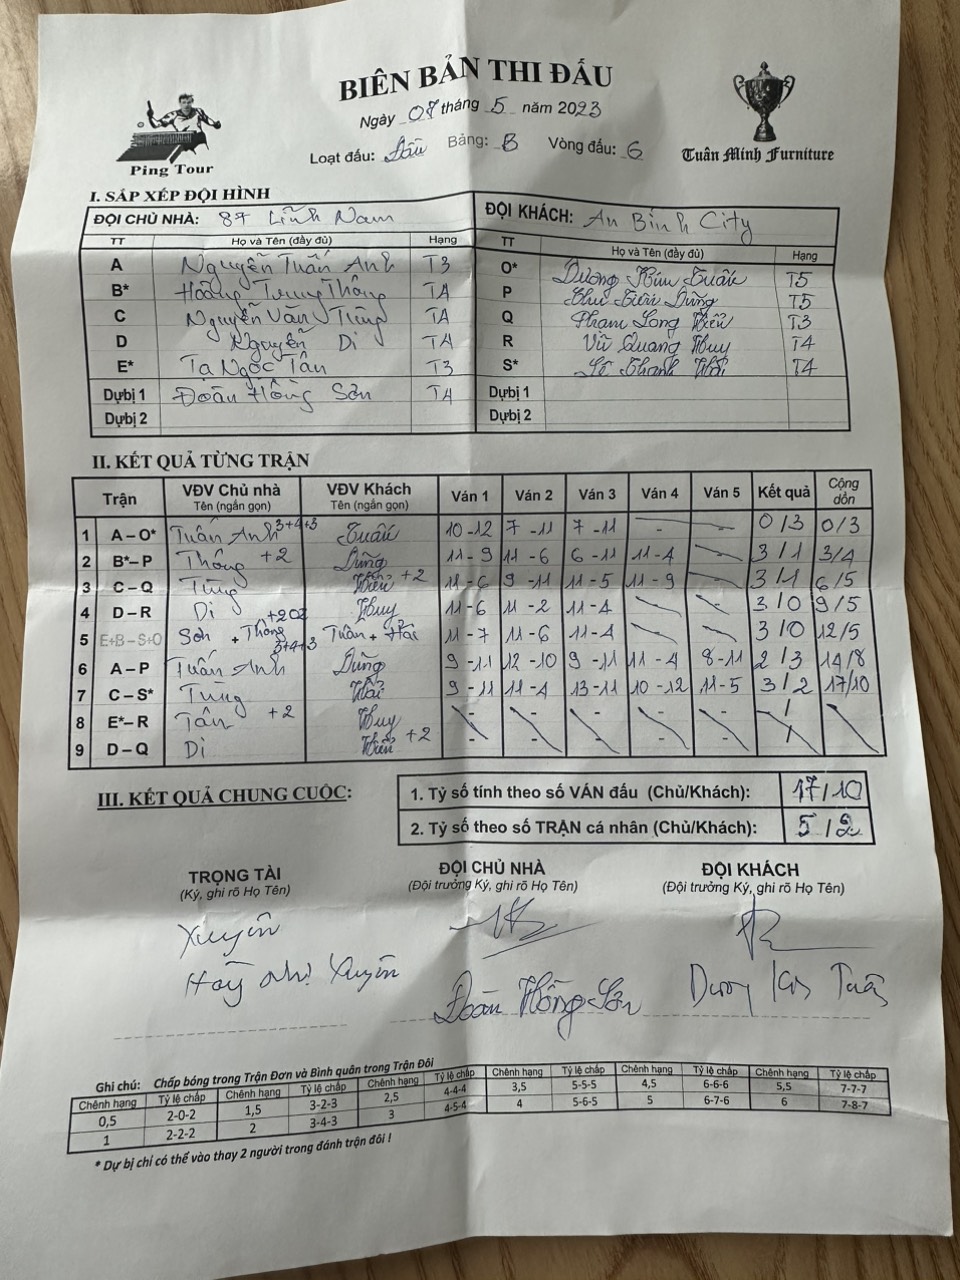 BIÊN BẢN THI ĐẤU
Ngày 07 tháng 5 năm 2023
Loạt đấu: Đầu Bảng: B Vòng đấu: 6
Ping Tour
Tuân Minh Furniture
I. SẮP XẾP ĐỘI HÌNH
ĐỘI CHỦ NHÀ: 87 Lĩnh Nam
TT Họ và Tên (đầy đủ) Hạng
A Nguyễn Tuấn Anh T3
B* Hoàng Trung Thông T4
C Nguyễn Văn Tùng T4
D Nguyễn Di T4
E* Tạ Ngọc Tân T3
Dự bị 1 Đoàn Hồng Sơn T4
Dự bị 2
ĐỘI KHÁCH: An Bình City
TT Họ và Tên (đầy đủ) Hạng
O* Dương Kim Tuấn T5
P Tiến Dũng T5
Q Phạm Long Hiển T3
R Vũ Quang Huy T4
S* Lê Thanh Hải T4
Dự bị 1
Dự bị 2
II. KẾT QUẢ TỪNG TRẬN
Trận VĐV Chủ nhà Tên (ngắn gọn) VĐV Khách Tên (ngắn gọn) Ván 1 Ván 2 Ván 3 Ván 4 Ván 5 Kết quả Cộng dồn
1 A – O* Tuấn Anh 3+4+3 Tuấn 10-12 7-11 7-11 - - 0/3 0/3
2 B* – P Thông +2 Dũng 11-9 11-6 6-11 11-4 - 3/1 3/4
3 C – Q Tùng Hiển +2 11-6 9-11 11-5 11-9 - 3/1 6/5
4 D – R Di Huy 11-6 11-2 11-4 - - 3/0 9/5
5 E+B – S+O Sơn + Thông +202 Tuấn + Hải 11-7 11-6 11-4 - - 3/0 12/5
6 A – P Tuấn Anh 3+4+3 Dũng 9-11 12-10 9-11 11-4 8-11 2/3 14/8
7 C – S* Tùng Hải 9-11 11-4 13-11 10-12 11-5 3/2 17/10
8 E* – R Tân +2 Huy - - - - - /
9 D – Q Di Hiển +2 - - - - - /
III. KẾT QUẢ CHUNG CUỘC:
1. Tỷ số tính theo số VÁN đấu (Chủ/Khách): 17/10
2. Tỷ số theo số TRẬN cá nhân (Chủ/Khách): 5/2
TRỌNG TÀI
(Ký, ghi rõ Họ Tên)
Xuyên
Xuyên
ĐỘI CHỦ NHÀ
(Đội trưởng Ký, ghi rõ Họ Tên)
Đoàn Hồng Sơn
ĐỘI KHÁCH
(Đội trưởng Ký, ghi rõ Họ Tên)
Dương Kim Tuấn
Ghi chú: Chấp bóng trong Trận Đơn và Bình quân trong Trận Đôi
Chênh hạng Tỷ lệ chấp Chênh hạng Tỷ lệ chấp Chênh hạng Tỷ lệ chấp Chênh hạng Tỷ lệ chấp Chênh hạng Tỷ lệ chấp Chênh hạng Tỷ lệ chấp
0,5 2-0-2 1,5 3-2-3 2,5 4-4-4 3,5 5-5-5 4,5 6-6-6 5,5 7-7-7
1 2-2-2 2 3-4-3 3 4-5-4 4 5-6-5 5 6-7-6 6 7-8-7
* Dự bị chỉ có thể vào thay 2 người trong đánh trận đôi !